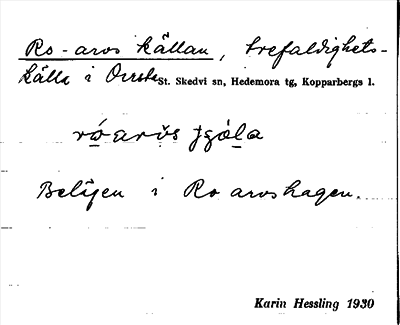 Ro-aros källan, trefaldighets-
källa i St. Skedvi sn, Hedemora tg, Kopparbergs l.
Belägen i Ro aroshagen.
Karin Hessling 1930